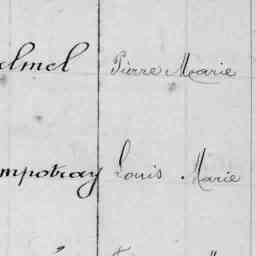 elmel Pierre Marie
mpotray Louis Marie